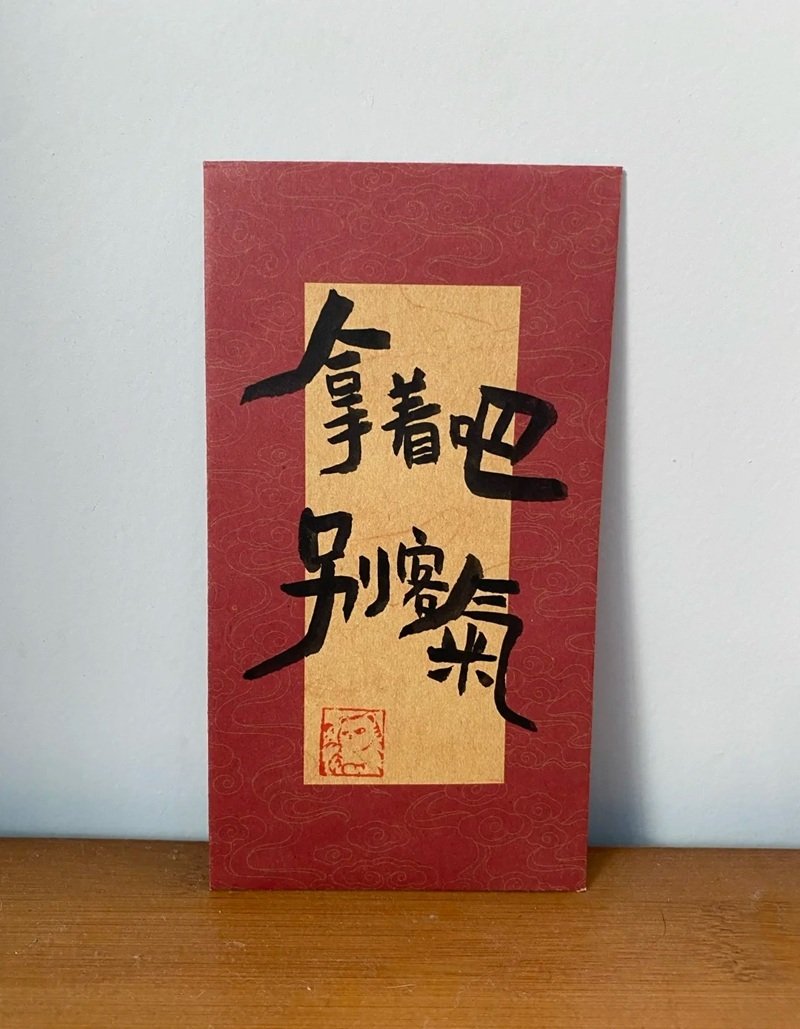 拿着吧
别客氣